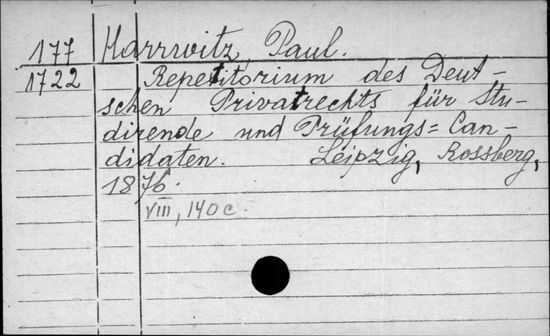 177 Harrwitz, Paul.
1722 Repetitorium des Deut-
schen Privatrechts für Stu-
dirende und Prüfungs=Can-
didaten. Leipzig, Rossberg,
1876.
VIII, 140 c.